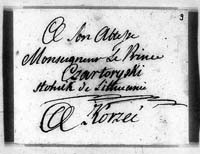 3
A Son Altesse
Monseigneur Le Prince
Czartoryski
de Lithuanie
A Korzec